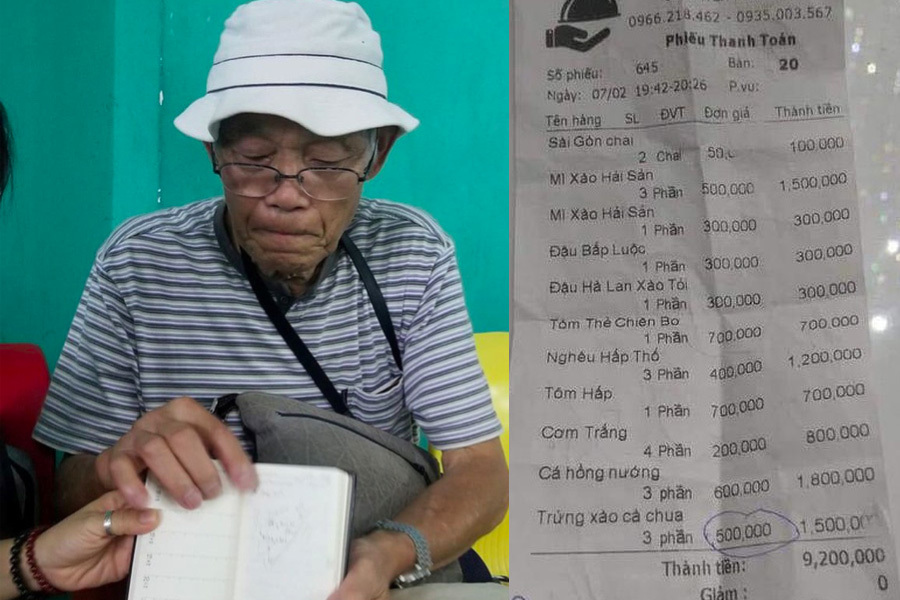 0966.218.462 - 0935.003.567
Phiếu Thanh Toán
Số phiếu: 645 Bàn: 20
Ngày: 07/02 19:42-20:26 P.vụ:
Tên hàng SL ĐVT Đơn giá Thành tiền
Sài Gòn chai
2 Chai 100,000
Mì Xào Hải Sản
3 Phần 500,000 1,500,000
Mì Xào Hải Sản
1 Phần 300,000 300,000
Đậu Bắp Luộc
1 Phần 300,000 300,000
Đậu Hà Lan Xào Tỏi
1 Phần 300,000 300,000
Tôm Thẻ Chiên Bơ
1 Phần 700,000 700,000
Nghêu Hấp Thố
3 Phần 400,000 1,200,000
Tôm Hấp
1 Phần 700,000 700,000
Cơm Trắng
4 Phần 200,000 800,000
Cá hồng nướng
3 phần 600,000 1,800,000
Trứng xào cà chua
3 phần 500,000 1,500,000
Thành tiền: 9,200,000
Giảm : 0